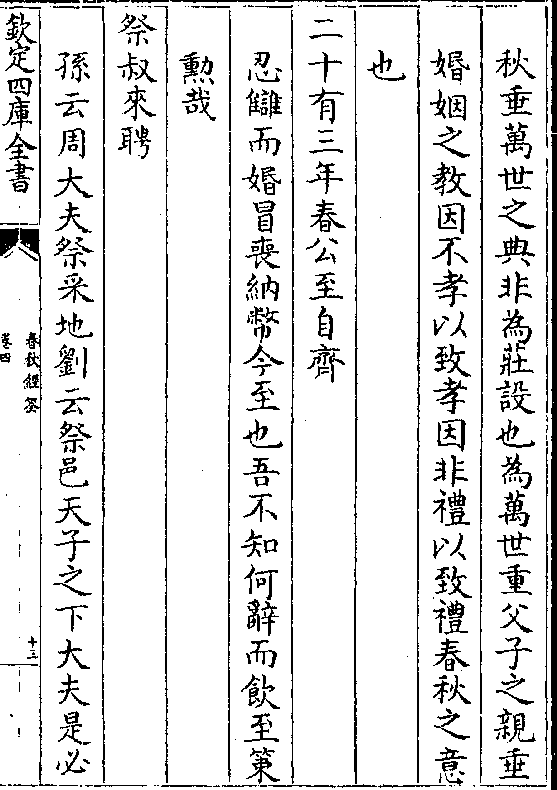 秋垂萬世之典非為莊設也為萬世重父子之親垂
婚姻之教因不孝以致孝因非禮以致禮春秋之意
也
二十有三年春公至自齊
忍讎而婚冒喪納幣今至也吾不知何辭而飲至策
勲哉
祭叔來聘
孫云周大夫祭采地劉云祭邑天子之下大夫是必
欽定四庫全書
春秋經筌
卷四
十三